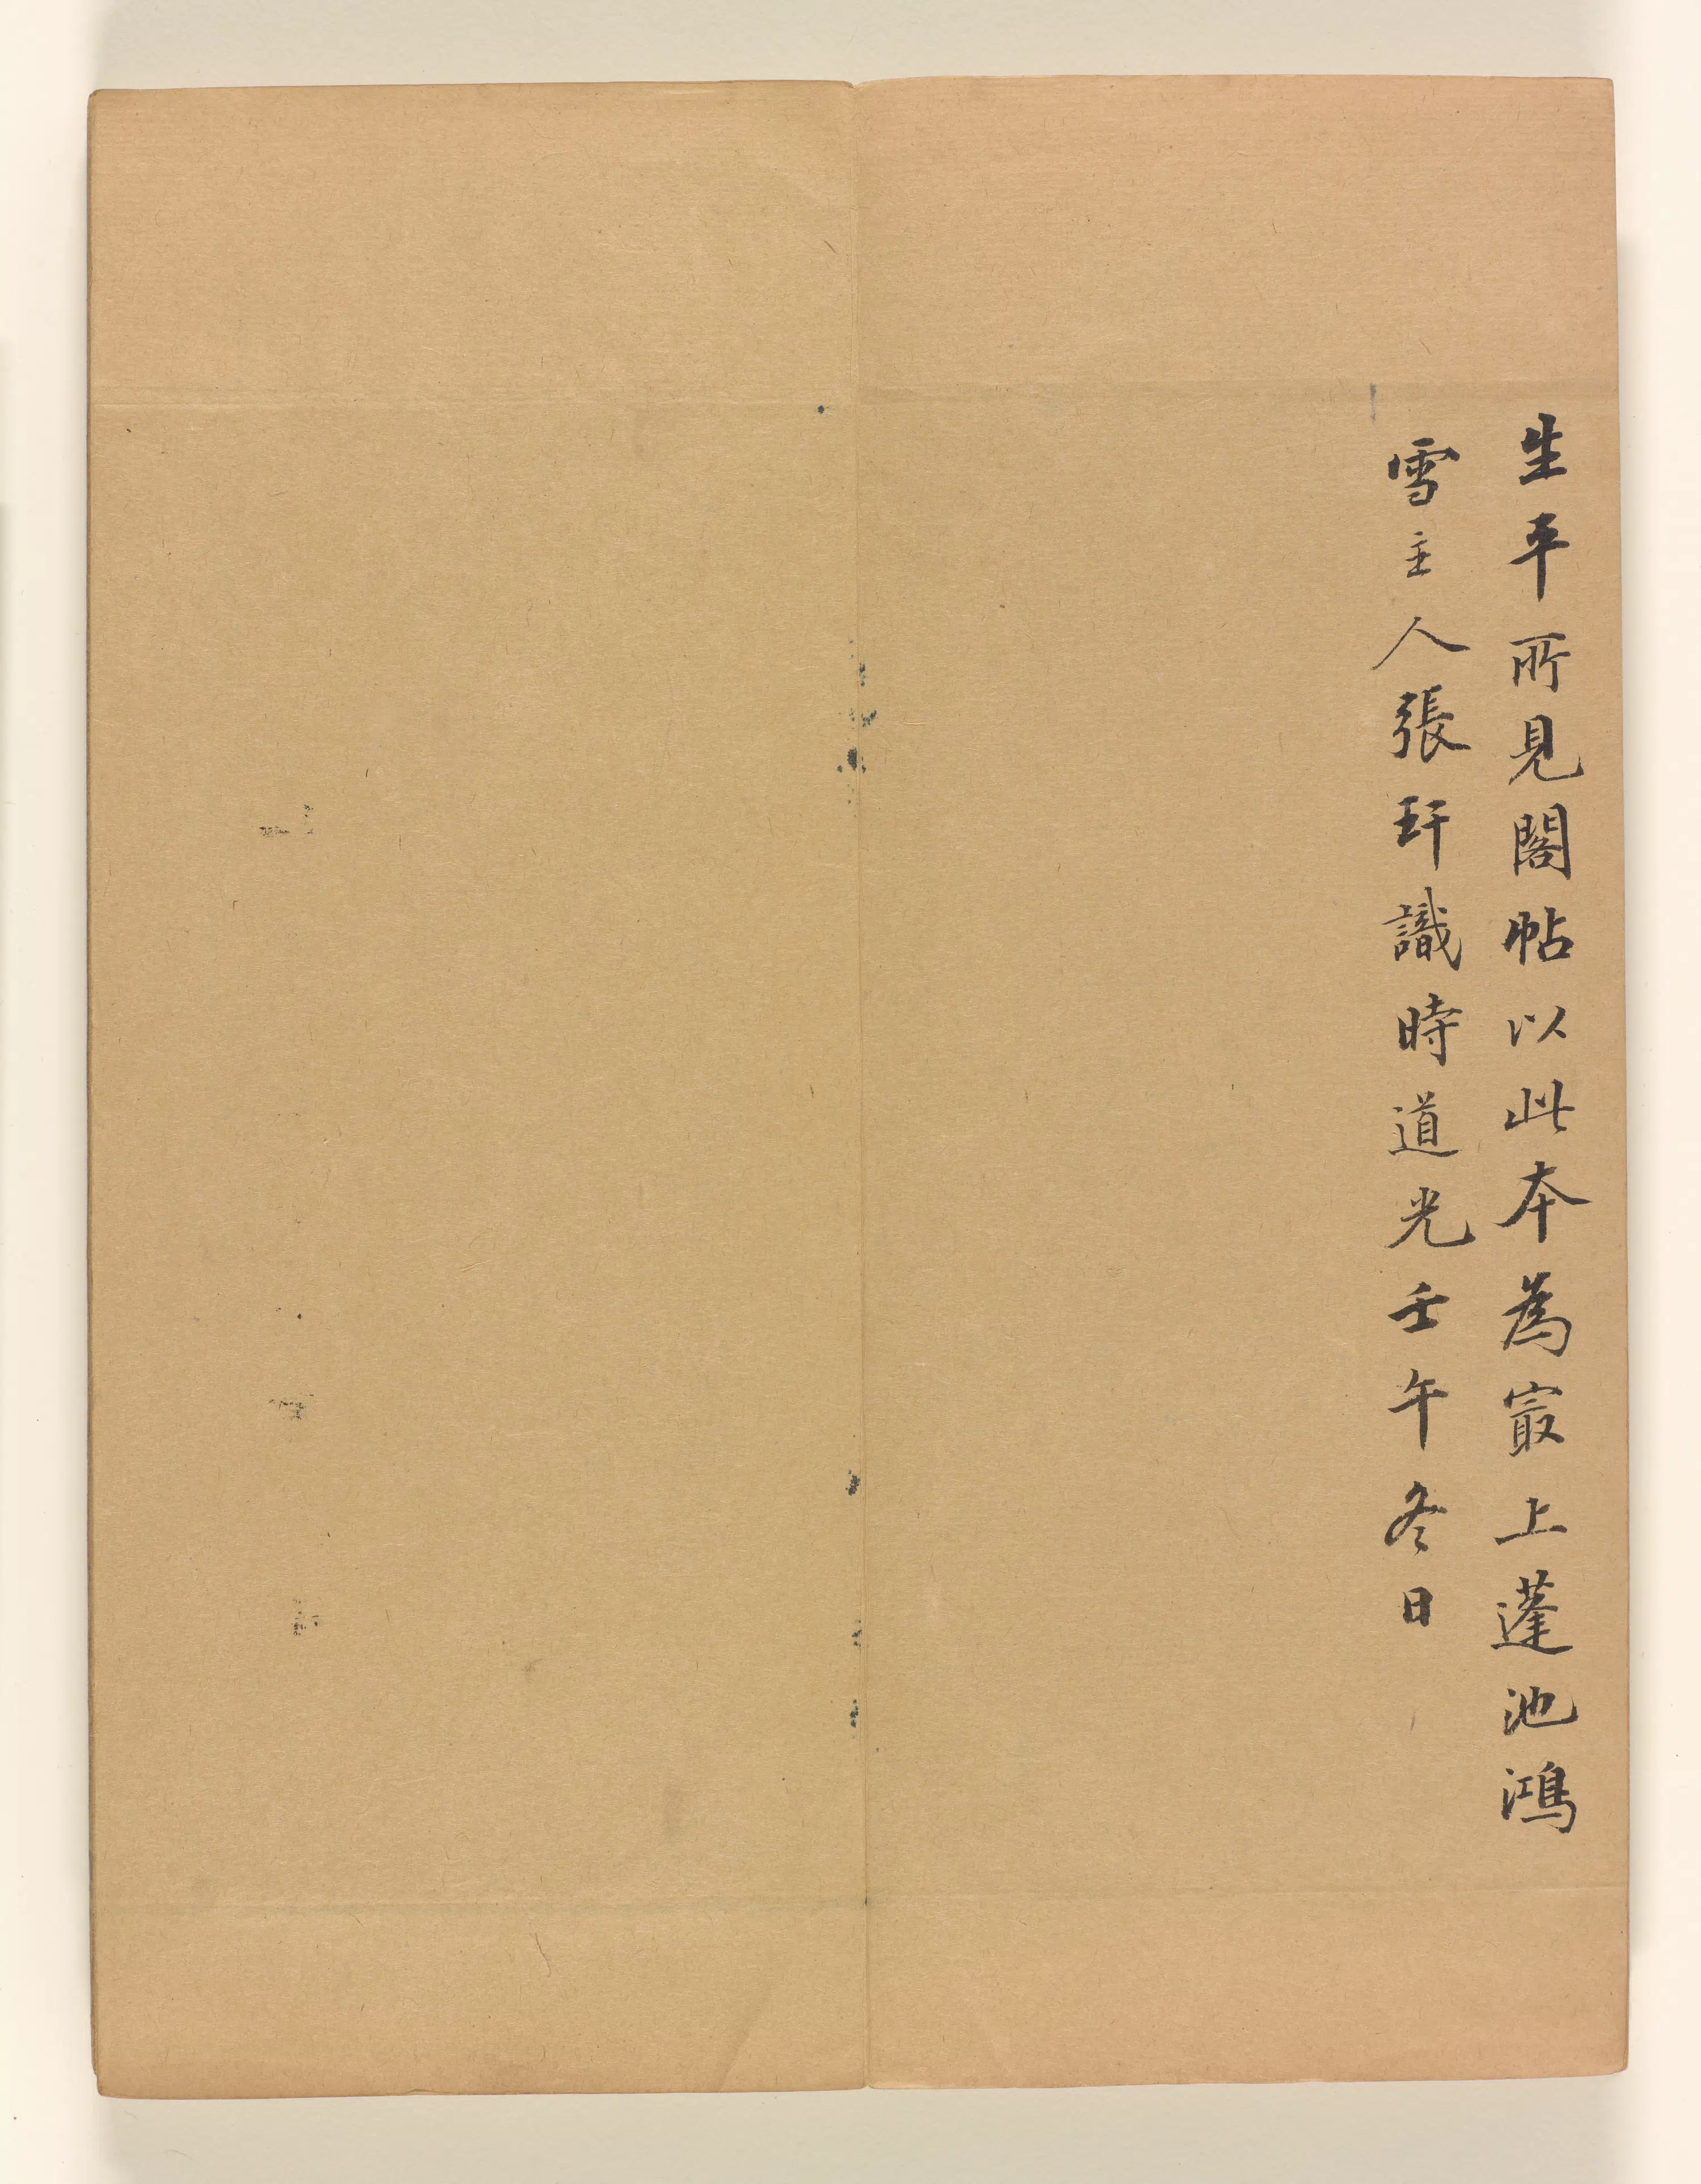 生平所見閣帖以此本為㝡上蓬池鴻
雪主人張玕識時道光壬午冬日